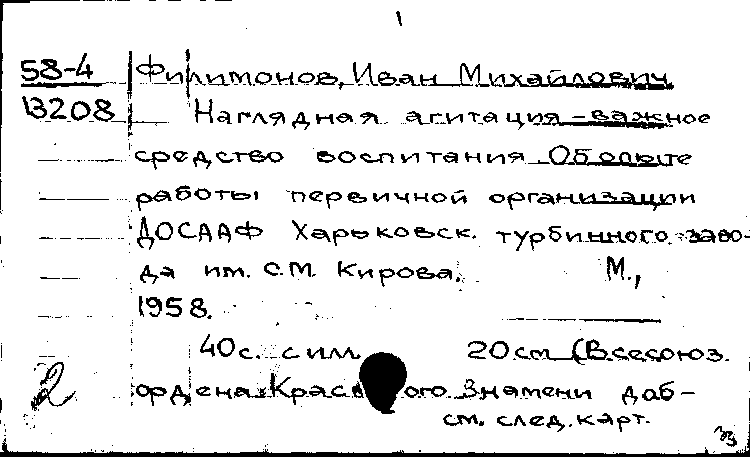 1
58-4 Филимонов, Иван Михайлович
13208 Наглядная агитация – важное
средство воспитания Об опыте
работы первичной организации
ДОСААФ Харьковск. турбинного заво-
да им. С.М. Кирова. М.,
1958.
40с. с илл. 20см (Всесоюз.
2 ордена Крас ого Знамени доб-
см. след. карт.